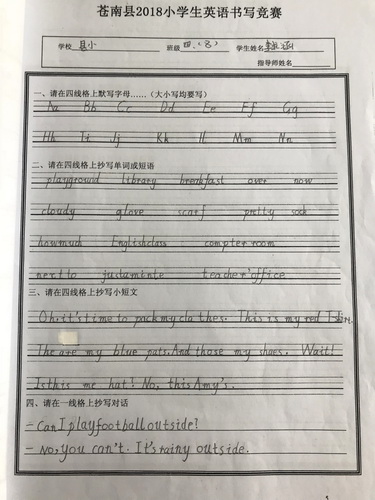 苍南县2018小学生英语书写竞赛
学校 县小 班级 四.(8) 学生姓名
指导师姓名
一、请在四线格上默写字母……(大小写均要写)
Aa Bb Cc Dd Ee Ff Gg
Hh Ii Jj Kk Ll Mm Nn
二、请在四线格上抄写单词或短语
playgrowld library breakfast over now
cloudy glove scarf pretty sock
howmuch Englishclass compter room
next to justaminte teacher'office
三、请在四线格上抄写小短文
Oh, it's time to pack my clathes. This is my red T-shirt.
The are my blue pats. And those my shoes. Wait!
Is this me hat? No, this Amy's.
四、请在一线格上抄写对话
- Can I play football outside?
- No, you can't. It's rainy outside.